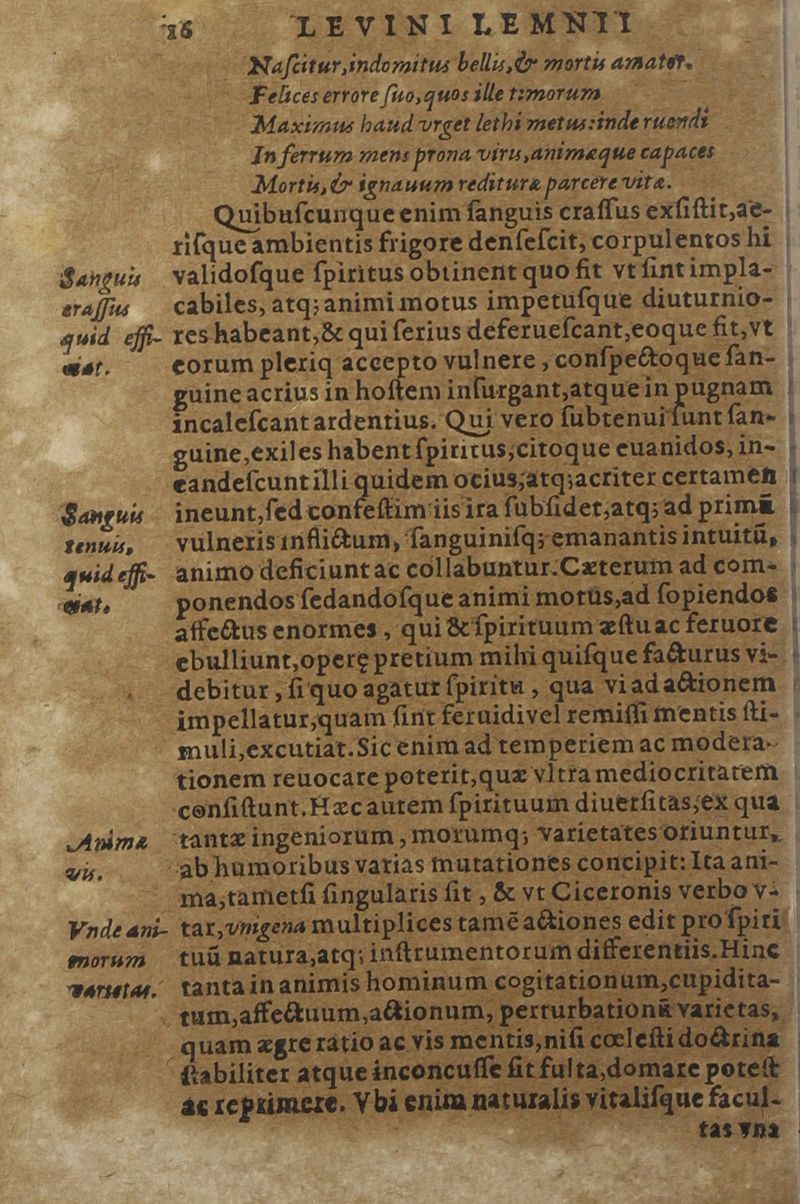 26 LEVINI LEMNII
Naſcitur,indomitus bellis,& mortis amator.
Felices errore ſuo,quos ille timorum
Maximus haud vrget lethi metus:inde ruendi
In ferrum mens prona viris,animæque capaces
Mortis,& ignauum redituræ parcere vitæ.
Quibuſcunque enim ſanguis craſſus exſiſtit,ae-
riſque ambientis frigore denſeſcit, corpulentos hi
Sanguis
validoſque ſpiritus obtinent quo fit vt ſint impla-
craſſus
cabiles, atq; animi motus impetuſque diuturnio-
quid effi-
res habeant,& qui ſerius deferueſcant,eoque fit,vt
ciat.
eorum pleriq accepto vulnere , conſpectoque ſan-
guine acrius in hoſtem inſurgant,atque in pugnam
incaleſcant ardentius. Qui vero ſubtenui ſunt ſan-
guine,exiles habent ſpiritus,citoque euanidos, in-
candeſcunt illi quidem ocius,atq; acriter certamen
Sanguis
ineunt,ſed confeſtim iis ira ſubſidet,atq; ad primā
tenuis,
vulneris inflictum, ſanguiniſq; emanantis intuitū,
quid effi-
animo deficiunt ac collabuntur.Cæterum ad com-
ciat.
ponendos ſedandoſque animi motus,ad ſopiendos
affectus enormes , qui & ſpirituum æſtu ac feruore
ebulliunt,operę pretium mihi quiſque facturus vi-
debitur , ſi quo agatur ſpiritu , qua vi ad actionem
impellatur,quam ſint feruidi vel remiſſi mentis ſti-
muli,excutiat.Sic enim ad temperiem ac modera-
tionem reuocare poterit,quæ vltra mediocritatem
conſiſtunt.Hæc autem ſpirituum diuerſitas,ex qua
Animæ
tantæ ingeniorum , morumq; varietates oriuntur,
vis.
ab humoribus varias mutationes concipit: Ita ani-
ma,tametſi ſingularis ſit , & vt Ciceronis verbo v-
Vnde ani-
tar,vnigena multiplices tamē actiones edit pro ſpiri
morum
tuū natura,atq; inſtrumentorum differentiis.Hinc
varietas.
tanta in animis hominum cogitationum,cupidita-
tum,affectuum,actionum, perturbationū varietas,
quam ægre ratio ac vis mentis,niſi cœleſti doctrina
ſtabiliter atque inconcuſſe ſit fulta,domare poteſt
ac reprimere. Vbi enim naturalis vitaliſque facul-
tas vna